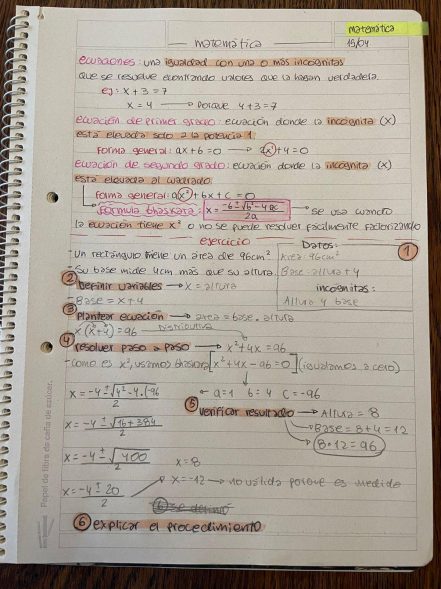 matemática
matemática
15/04
ecuaciones: una igualdad con una o más incognitas
que se resuelve econtrando valores que la hagan verdadera.
ej: x + 3 = 7
x = 4 → porque 4+3=7
ecuación de primer grado: ecuación donde la incognita (x)
está elevada solo a la potencia 1.
Forma general: ax + b = 0 → 2x+4=0
ecuación de segundo grado: ecuación donde la incognita (x)
está elevada al cuadrado
forma general: ax² + bx + c = 0
fórmula bhaskara: x = -b ± √b² - 4ac / 2a → se usa cuando
la ecuación tiene x² o no se puede resolver facilmente factorizando
ejercicio
Datos:
1
-Un rectángulo tiene un area de 96cm²
Area: 96cm²
-Su base mide 4cm más que su altura.
Base: altura + 4
2 Definir variables → x = altura
incognitas:
-Base = x + 4
Altura y base
3 Plantear ecuación → area = base . altura
x (x+4) = 96
Distributiva
4 resolver paso a paso → x² + 4x = 96
-como es x², usamos bhaskara [x² + 4x - 96 = 0] (igualamos a cero)
a=1 b=4 c=-96
x = -4 ± √4² - 4.(-96 / 2
5 verificar resultado → Altura = 8
x = -4 ± √16 + 384 / 2
Base = 8+4 = 12
8 . 12 = 96
x = -4 ± √400 / 2
x = 8
x = -4 ± 20 / 2
x = -12 → no valida porque es medida
6 explicar el procedimiento
Papel de fibra de caña de azúcar.